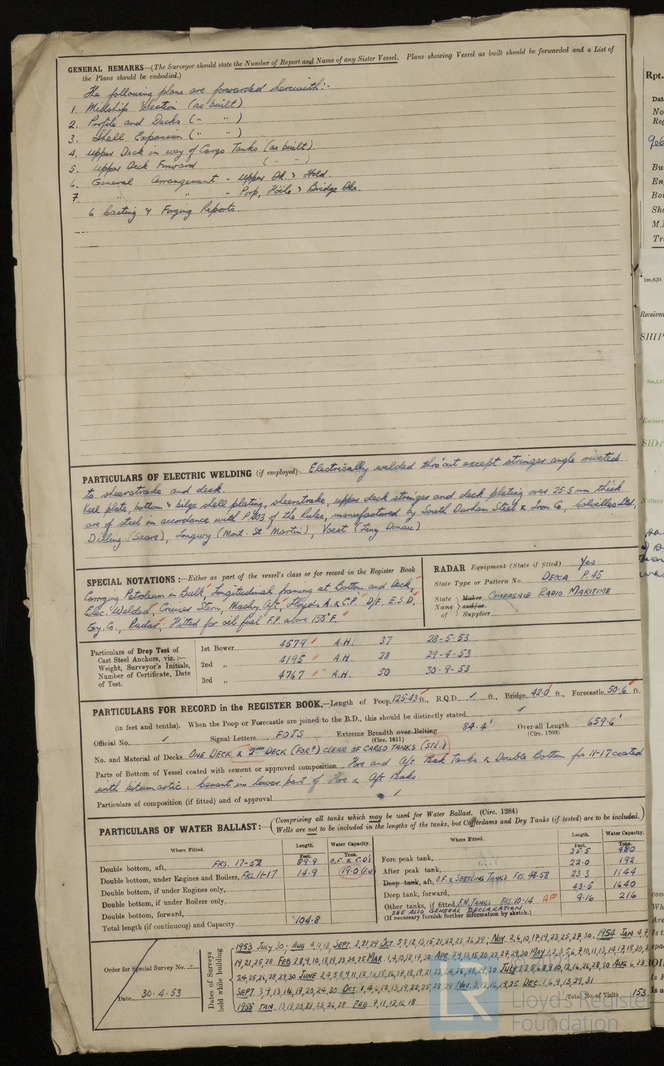 GENERAL REMARKS—(The Surveyor should state the Number of Report and Name of any Sister Vessel. Plans showing Vessel as built should be forwarded and a List of
the Plans should be embodied.)
The following plans are forwarded herewith:-
1. Midship Section (as built)
2. Profile and Decks ( " " )
3. Shell Expansion ( " " )
4. Upper Deck in way of Cargo Tanks (as built)
5. Upper Deck Forward ( " " )
6. General Arrangement - Upper Dk. & Hold.
7. " " - Poop, Fo'c'le & Bridge Dks.
6 Casting & Forging Reports.
PARTICULARS OF ELECTRIC WELDING (if employed) Electrically welded thro'out except stringer angle riveted
to sheerstrake and deck.
Keel plate, bottom & bilge shell plating, sheerstrake, upper deck stringer and deck plating over 25.5 mm thick
are of steel in accordance with P.403 of the Rules, manufactured by South Durham Steel & Iron Co, Colvilles Ltd,
Dilling (Saare), Longwy (Mont. St. Martin), Voest (Linz Donau)
SPECIAL NOTATIONS:—Either as part of the vessel's class or for record in the Register Book
Carrying Petroleum in Bulk, Longitudinal framing at Bottom and deck,
Elec. Welded, Cruiser Stern, Machy. Aft, Lloyds A. & C.P. D/F. E.S.D.
Gy. Co., Radar, Fitted for oil fuel F.P. above 150°F.
RADAR Equipment (State if fitted) Yes
State Type or Pattern No. DECCA P.45
State Name of Maker and/or Supplier COMPAGNIE RADIO MARITIME
Particulars of Drop Test of Cast Steel Anchors, viz.:— Weight, Surveyor's Initials, Number of Certificate, Date of Test.
1st Bower 4579 A.H. 37 28-5-53
2nd " 4195 A.H. 28 29-4-53
3rd " 4767 A.H. 50 30-9-53
PARTICULARS FOR RECORD in the REGISTER BOOK.—Length of Poop 125.43 ft., R.Q.D. / ft., Bridge 42.0 ft., Forecastle 50.6 ft.
(in feet and tenths). When the Poop or Forecastle are joined to the B.D., this should be distinctly stated
Official No. / Signal Letters FOTS Extreme Breadth over Belting (Circ. 1611) 84.4' Over-all Length (Circ. 1760) 659.6'
No. and Material of Decks ONE DECK & 2ND DECK (FORD) CLEAR OF CARGO TANKS (STL.)
Parts of Bottom of Vessel coated with cement or approved composition Fore and Aft Peak Tanks & Double Bottom for 11-17 coated
with bitumastic. Cement in lower part of Fore & Aft Peaks
Particulars of composition (if fitted) and of approval /
PARTICULARS OF WATER BALLAST:—(Comprising all tanks which may be used for Water Ballast. (Circ. 1284)
Wells are not to be included in the lengths of the tanks, but Cofferdams and Dry Tanks (if tested) are to be included.)
Where Fitted. Length. Feet. Water Capacity. Tons. Where Fitted. Length. Feet. Water Capacity. Tons.
Double bottom, aft, FRS. 17-52 89.9 O.F. & C.O's
Double bottom, under Engines and Boilers, FRS. 11-17 14.9 19.0 (F.W.)
Double bottom, if under Engines only,
Double bottom, if under Boilers only,
Double bottom, forward,
Total length (if continuous) and Capacity 104.8
Fore peak tank, 35.5 480
After peak tank, 22.0 192
Deep tank, aft, O.F. & SETTLING TANKS FRS. 48-58 23.3 1144
Deep tank, forward, 43.5 1640
Other tanks, if fitted, F.W. TANKS FRS. 10-14 9.16 216
SEE ALSO GENERAL DECLARATION
(If necessary furnish further information by sketch.)
Order for Special Survey No.
Date 30-4-53
Dates of Surveys held while building
1953 JULY 30; AUG 4,11,18, SEPT 2,21,29 OCT
NOV 2,6,10,17,19,23,25,27,30. 1954 JAN
19,21,25,28 FEB
MAR
APR
MAY
JUNE
JULY
AUG
SEPT 3,9,13,16,19,23,24,30 OCT
NOV
DEC 1,6,9,13,29,31
1955 JAN 13,19,20,21,22,26,28 FEB 7,11,12,16,18
Total No. of Visits 153
LR
Lloyd's Register
Foundation
Rpt.
SHIP